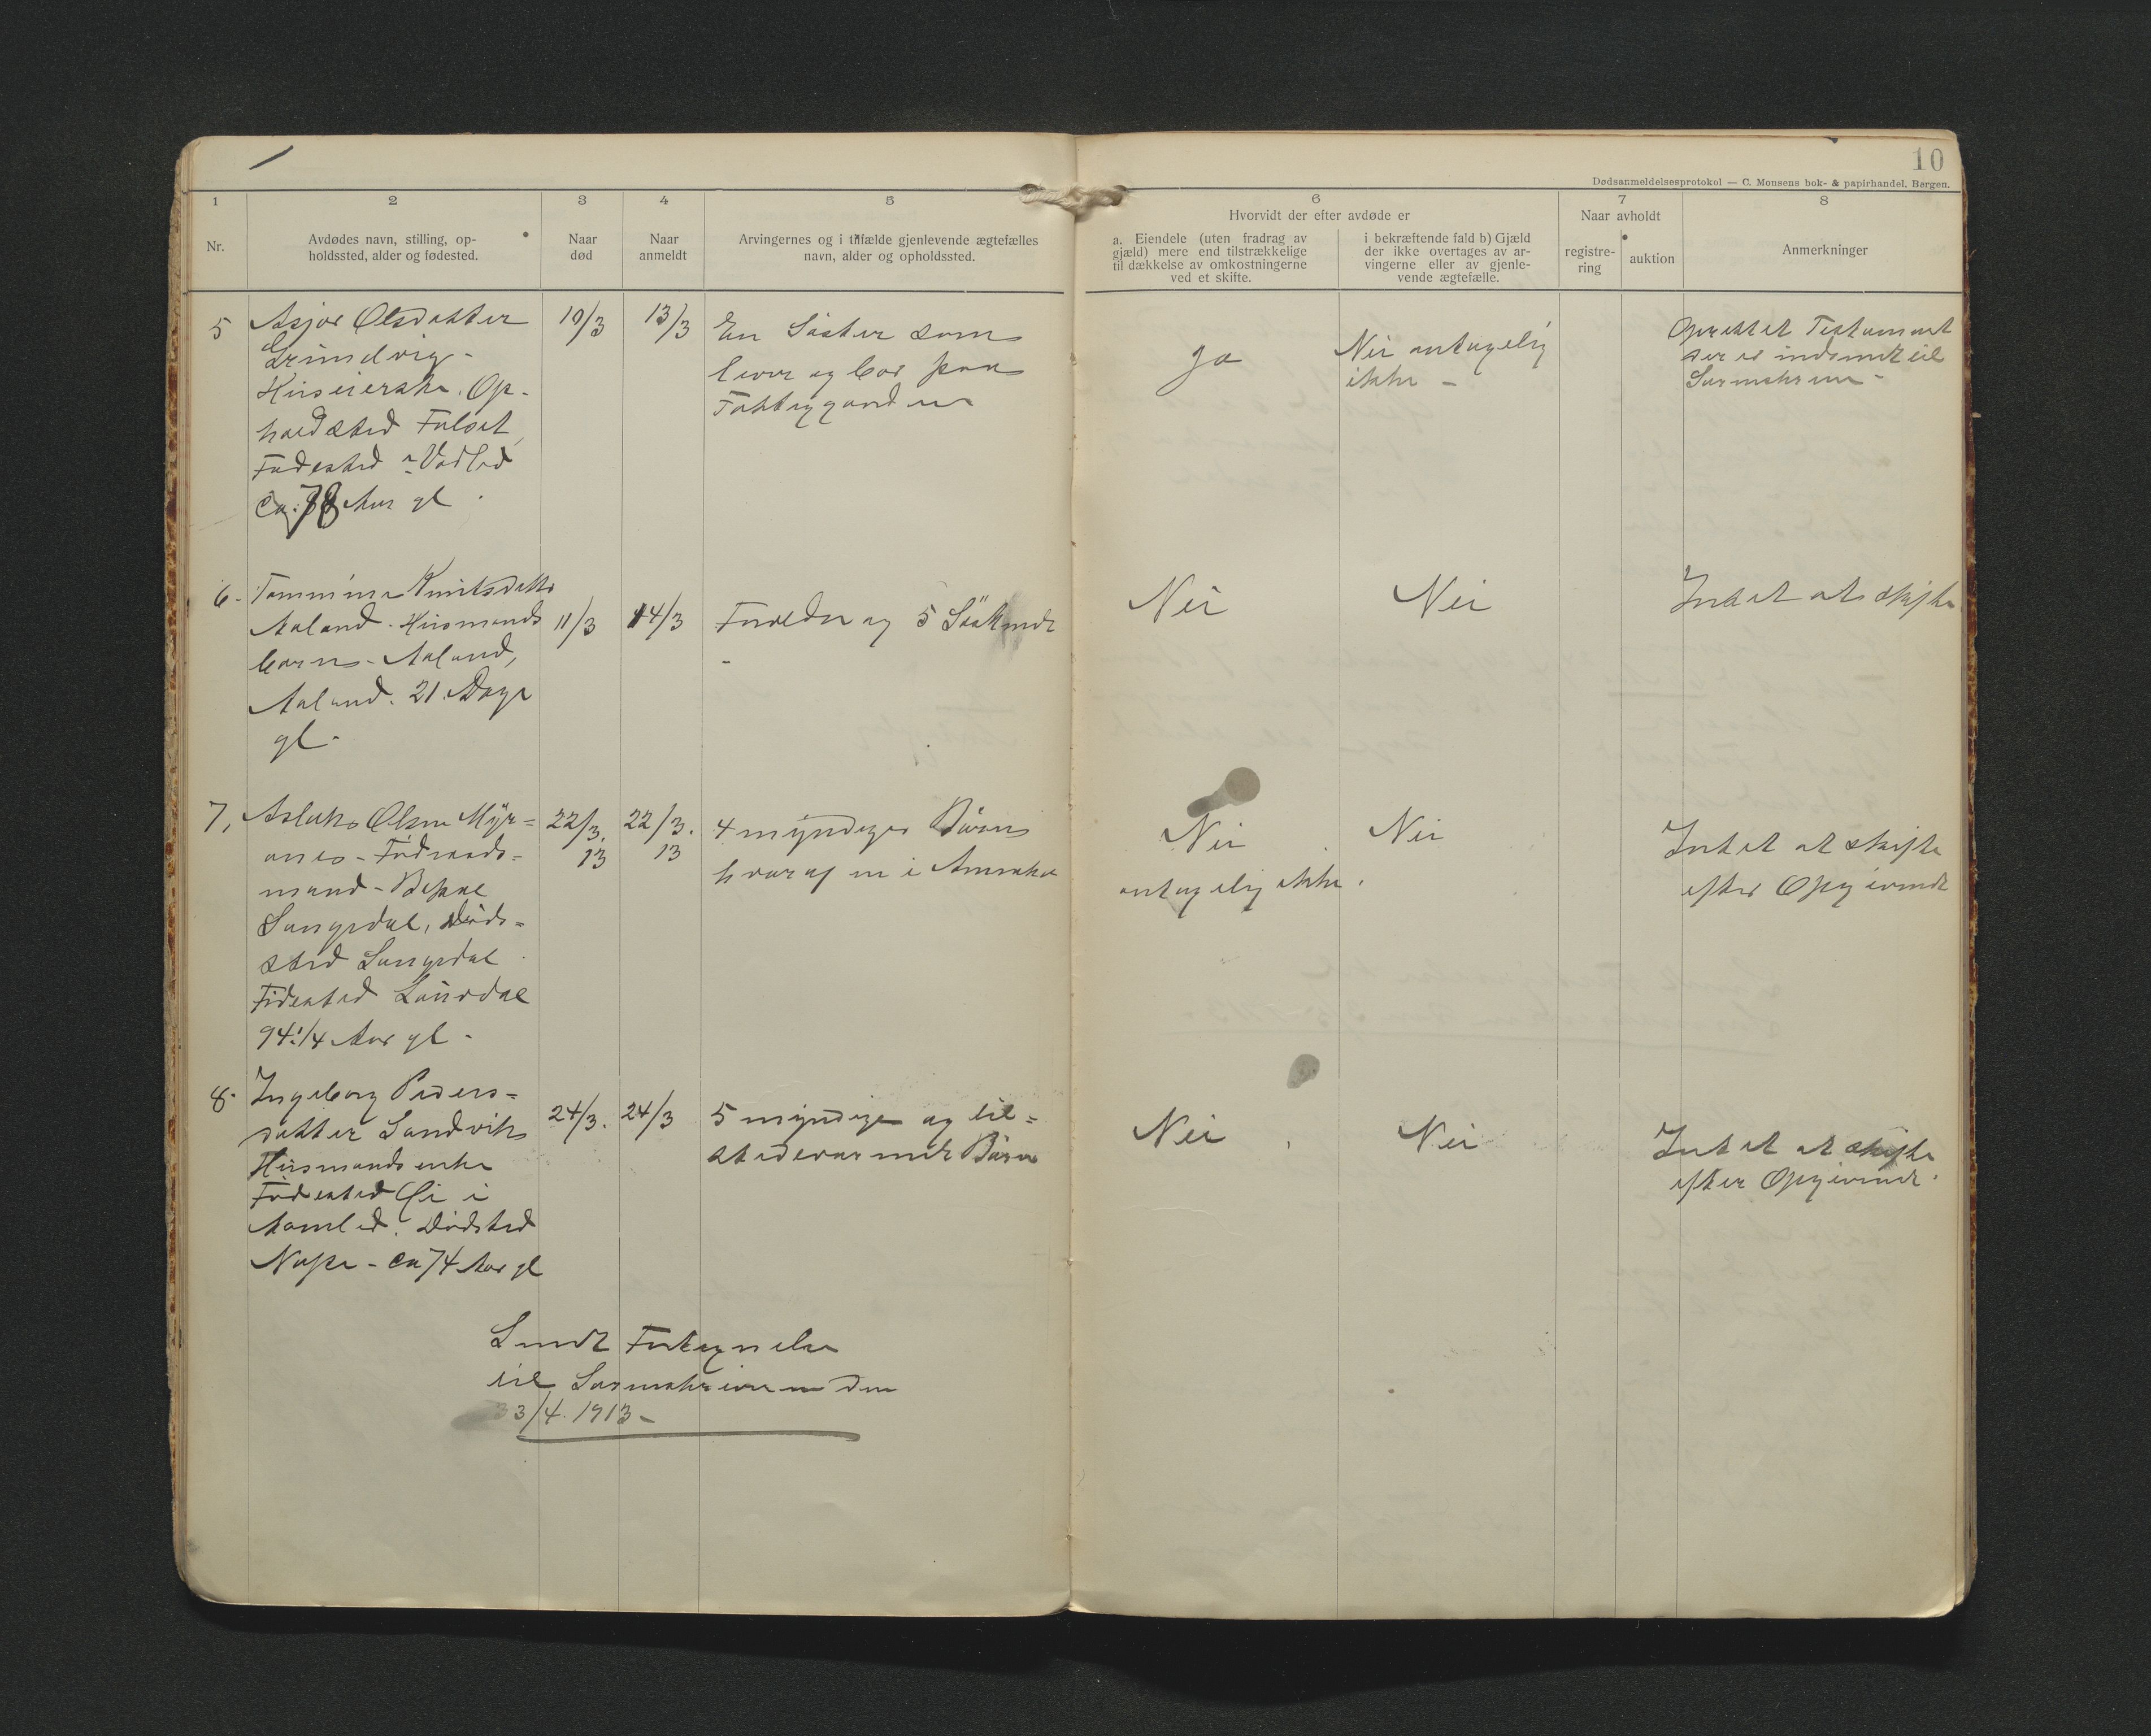 10
Dødsanmeldelsesprotokol — C. Monsens bok- & papirhandel, Bergen.
1
2
3
4
5
6
7
8
Nr.
Avdødes navn, stilling, op-
holdssted, alder og fødested.
Naar
død
Naar
anmeldt
Arvingernes og i tilfælde gjenlevende ægtefælles
navn, alder og opholdssted.
Hvorvidt der efter avdøde er
a. Eiendele (uten fradrag av
gjæld) mere end tilstrækkelige
til dækkelse av omkostningerne
ved et skifte.
i bekræftende fald b) Gjæld
der ikke overtages av ar-
vingerne eller av gjenle-
vende ægtefælle.
Naar avholdt
registre-
ring
auktion
Anmerkninger
5
Asjør Olsdatter
Grundvig -
Huseierske. Op-
holdssted
Fødested
Ca. 78 Aar gl.
10/3
13/3
En Søster som
lever og bor paa
Fattiggaarden
Ja
Nei antagelig
ikke -
Oprettet Testament
der er indsendt til
Sorenskriveren -
6.
Tommine Knutsdatter
Aaland. Husmands
barn - Aaland,
Aaland. 21 Dage
gl -
11/3
14/3
Foreldre og 5 Søskende
Nei
Nei
Intet at skifte
7,
Aslak Olsen Myr=
anes - Føderaads=
mand -
Songedal, Døds=
sted Songedal
Fødested
94 1/4 Aar gl -
22/3.
13
22/3.
13
4 myndige Børn
hvoraf en i Amerika
Nei
antagelig ikke.
Nei
Intet at skifte
efter Opgivende
8.
Ingeborg Peders=
datter Sandvik
Husmandsenke
Fødested i
Aamled. Dødsted
Nape - ca 74 Aar gl
24/3.
24/3
5 myndige og til=
stedeværende Børn
Nei
Nei
Intet at skifte
efter Opgivende.
Sendt Fortegnelse
til Sorenskriveren den
3/4. 1913 -